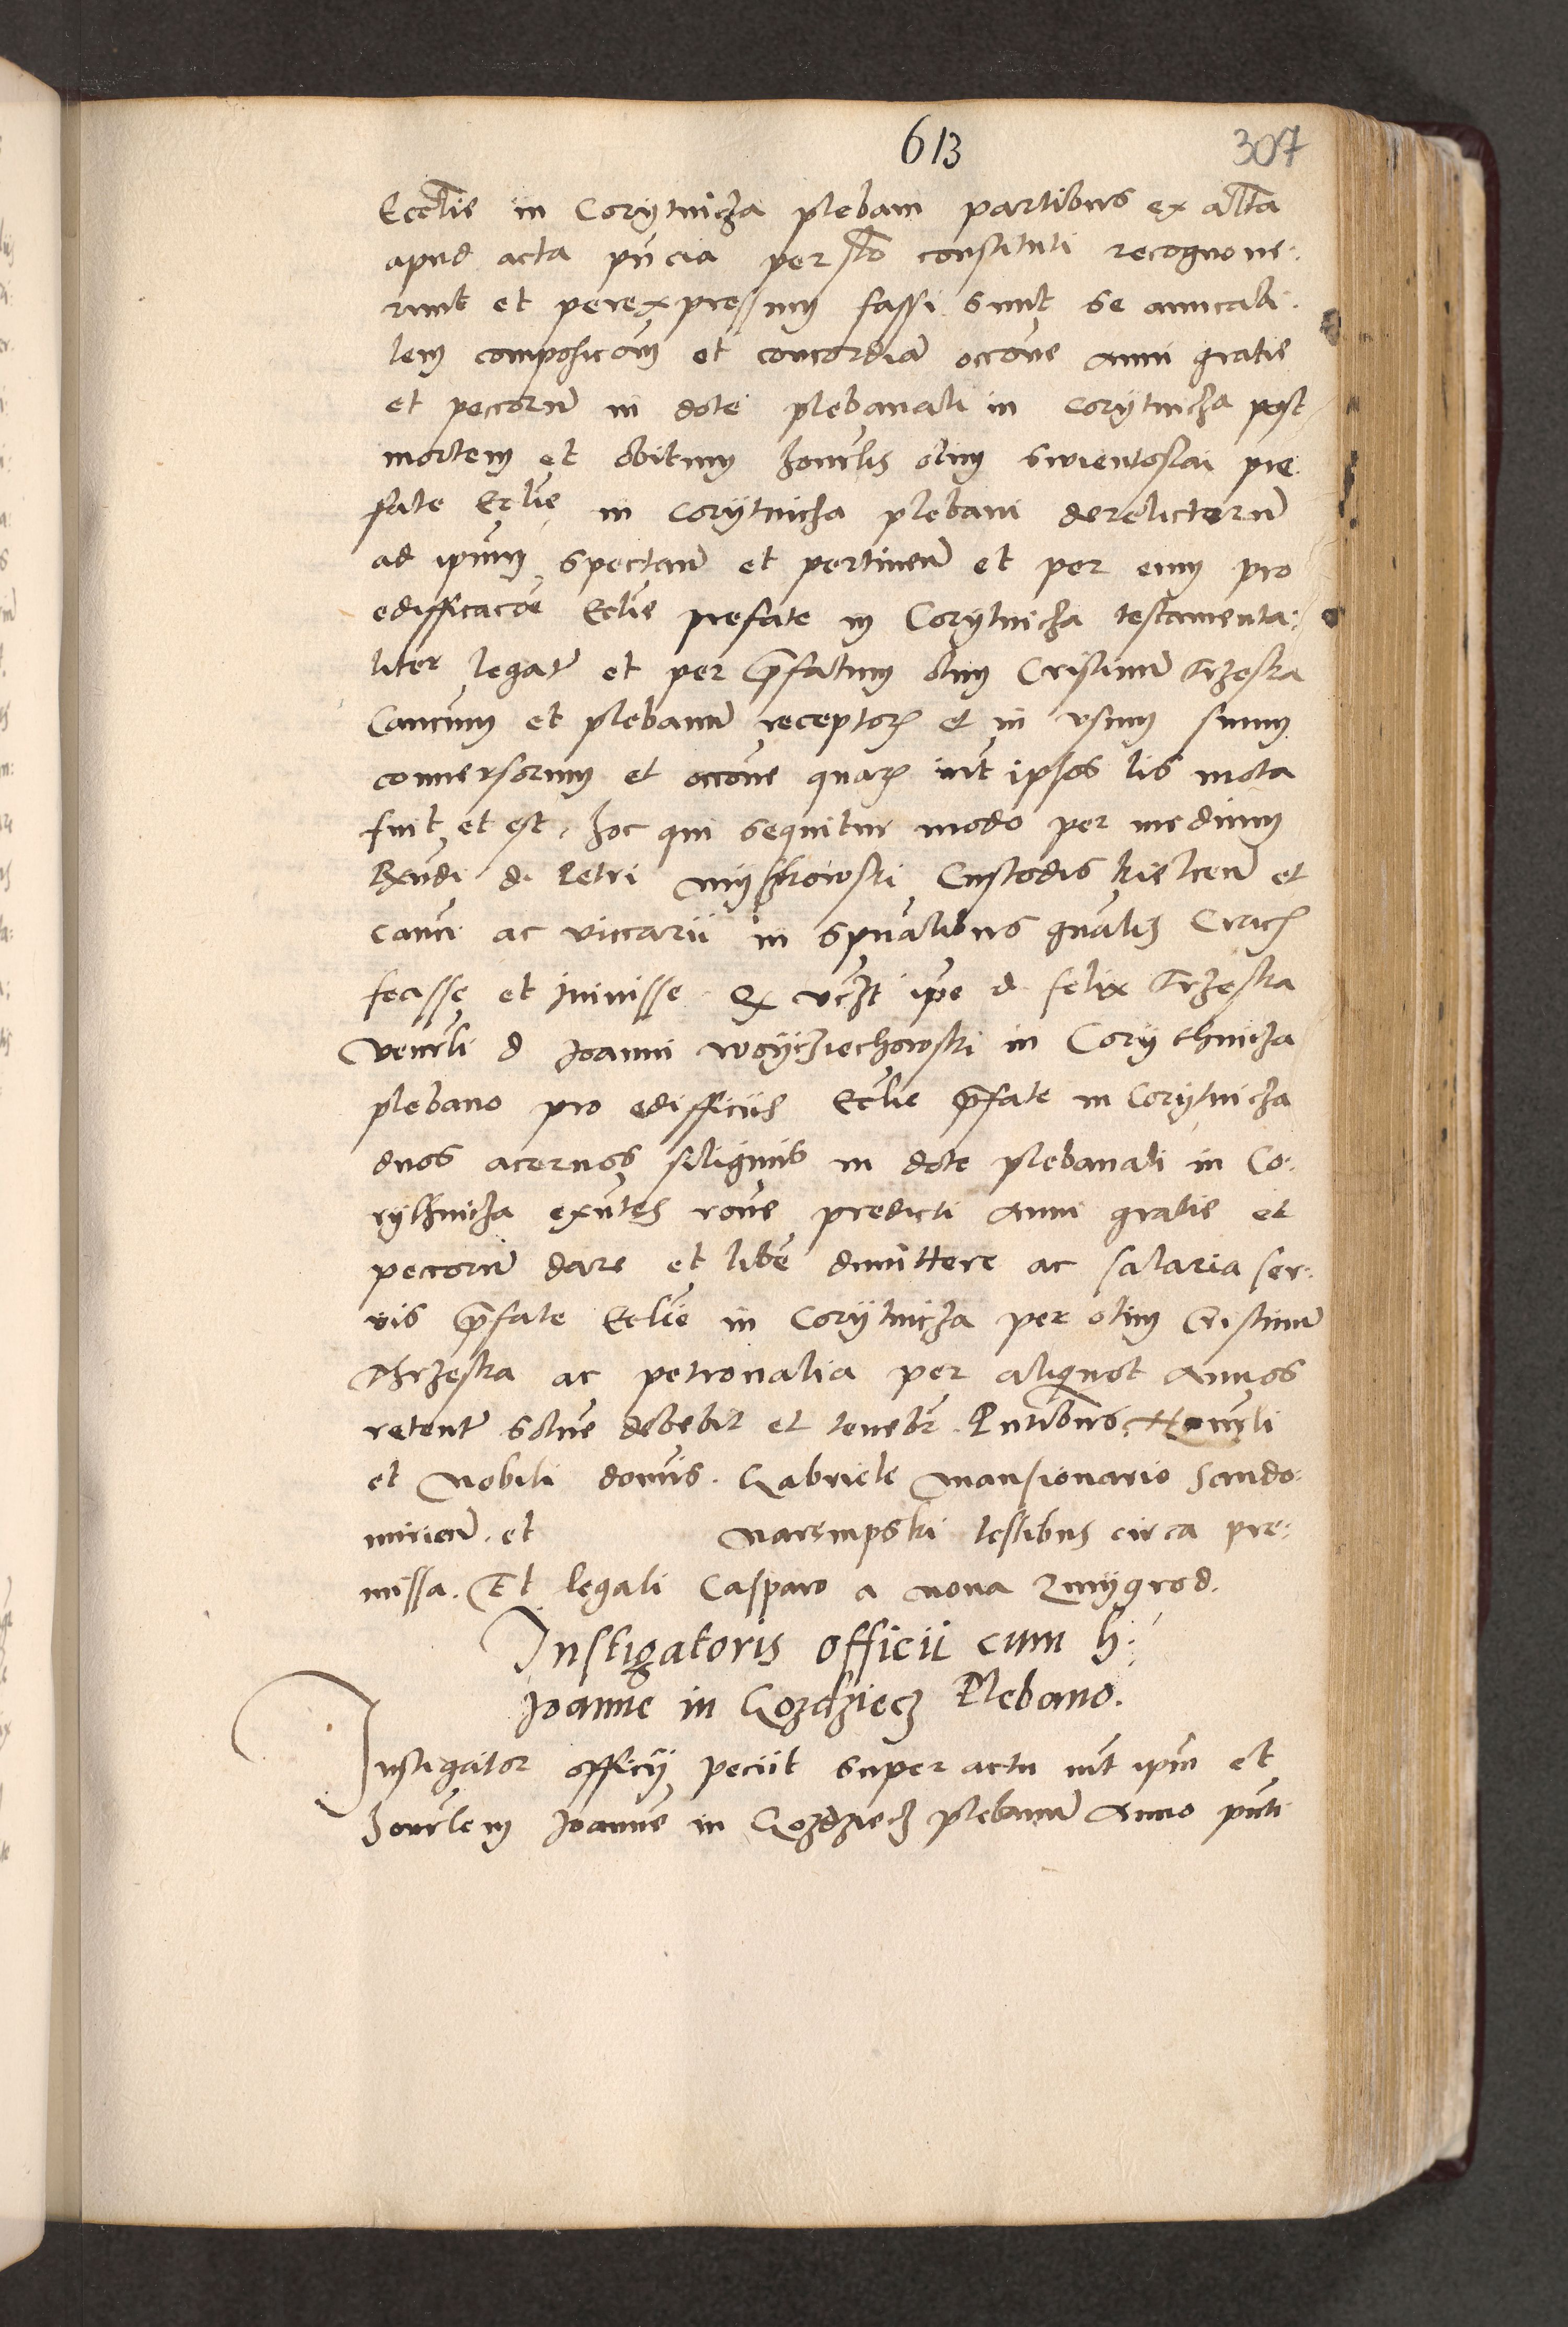 613
307
Ecclie in Corytnicza plebani partibus ex altra
apud acta pñcia perslr constituti recognove:
runt et perexpressum fassi sunt se amicabi:
lem composicõm et concordiã occone anni gratie
et peccorũ in dote plebanali in Corytnicza post
mortem et obitum honrlis olim Swientoslai pre
fate Ecclie in Corytnicza plebani derelictorũ
ad ipsum spectañ et pertineñ et per eum pro
edifficacõe Ecclie prefate in Corytnicza testamenta:
liter legatr et per pfatum olim Cristinũ Trzeska
Canrum et plebanũ receptor et in usum suum
conversorum et occone quar int ipsos lis mota
fuit et est, hoc qui sequitur modo per medium
Rxndi d. Petri Myszkowski Custodis Kielceñ et
canci ac viccarii in spualibus gnalis Crac
fecasse et inivisse. Q vczt ipe d. Felix Trzeska
venrli d Joanni Woycziechowski in Corythnicza
plebano pro edifficiis Ecclie pfate in Corytnicza
duos acervos siliginis in dote plebanali in Co:
rythnicza exntes rone predicti anni gratie et
peccorũ dare et libe dimittere ac salaria ser:
vis pfate Ecclie in Corytnicza per olim Cristinũ
Thrzeska ac petronalia per aliquot annos
retent solve debebit et tenebr. Pntibus Honrli
et Nobili domis. Gabriele Mansionario Sando:
mirieñ. et Narempski testibus circa pre:
missa. Et legali Casparo a nova Zmygrod.
Instigatoris officii cum h:
Joanne in Gozdziecz Plebano.
Instigator officy peciit super actu int ipm et
honrlem Joannẽ in Gozdziecz plebanũ Anno pnti